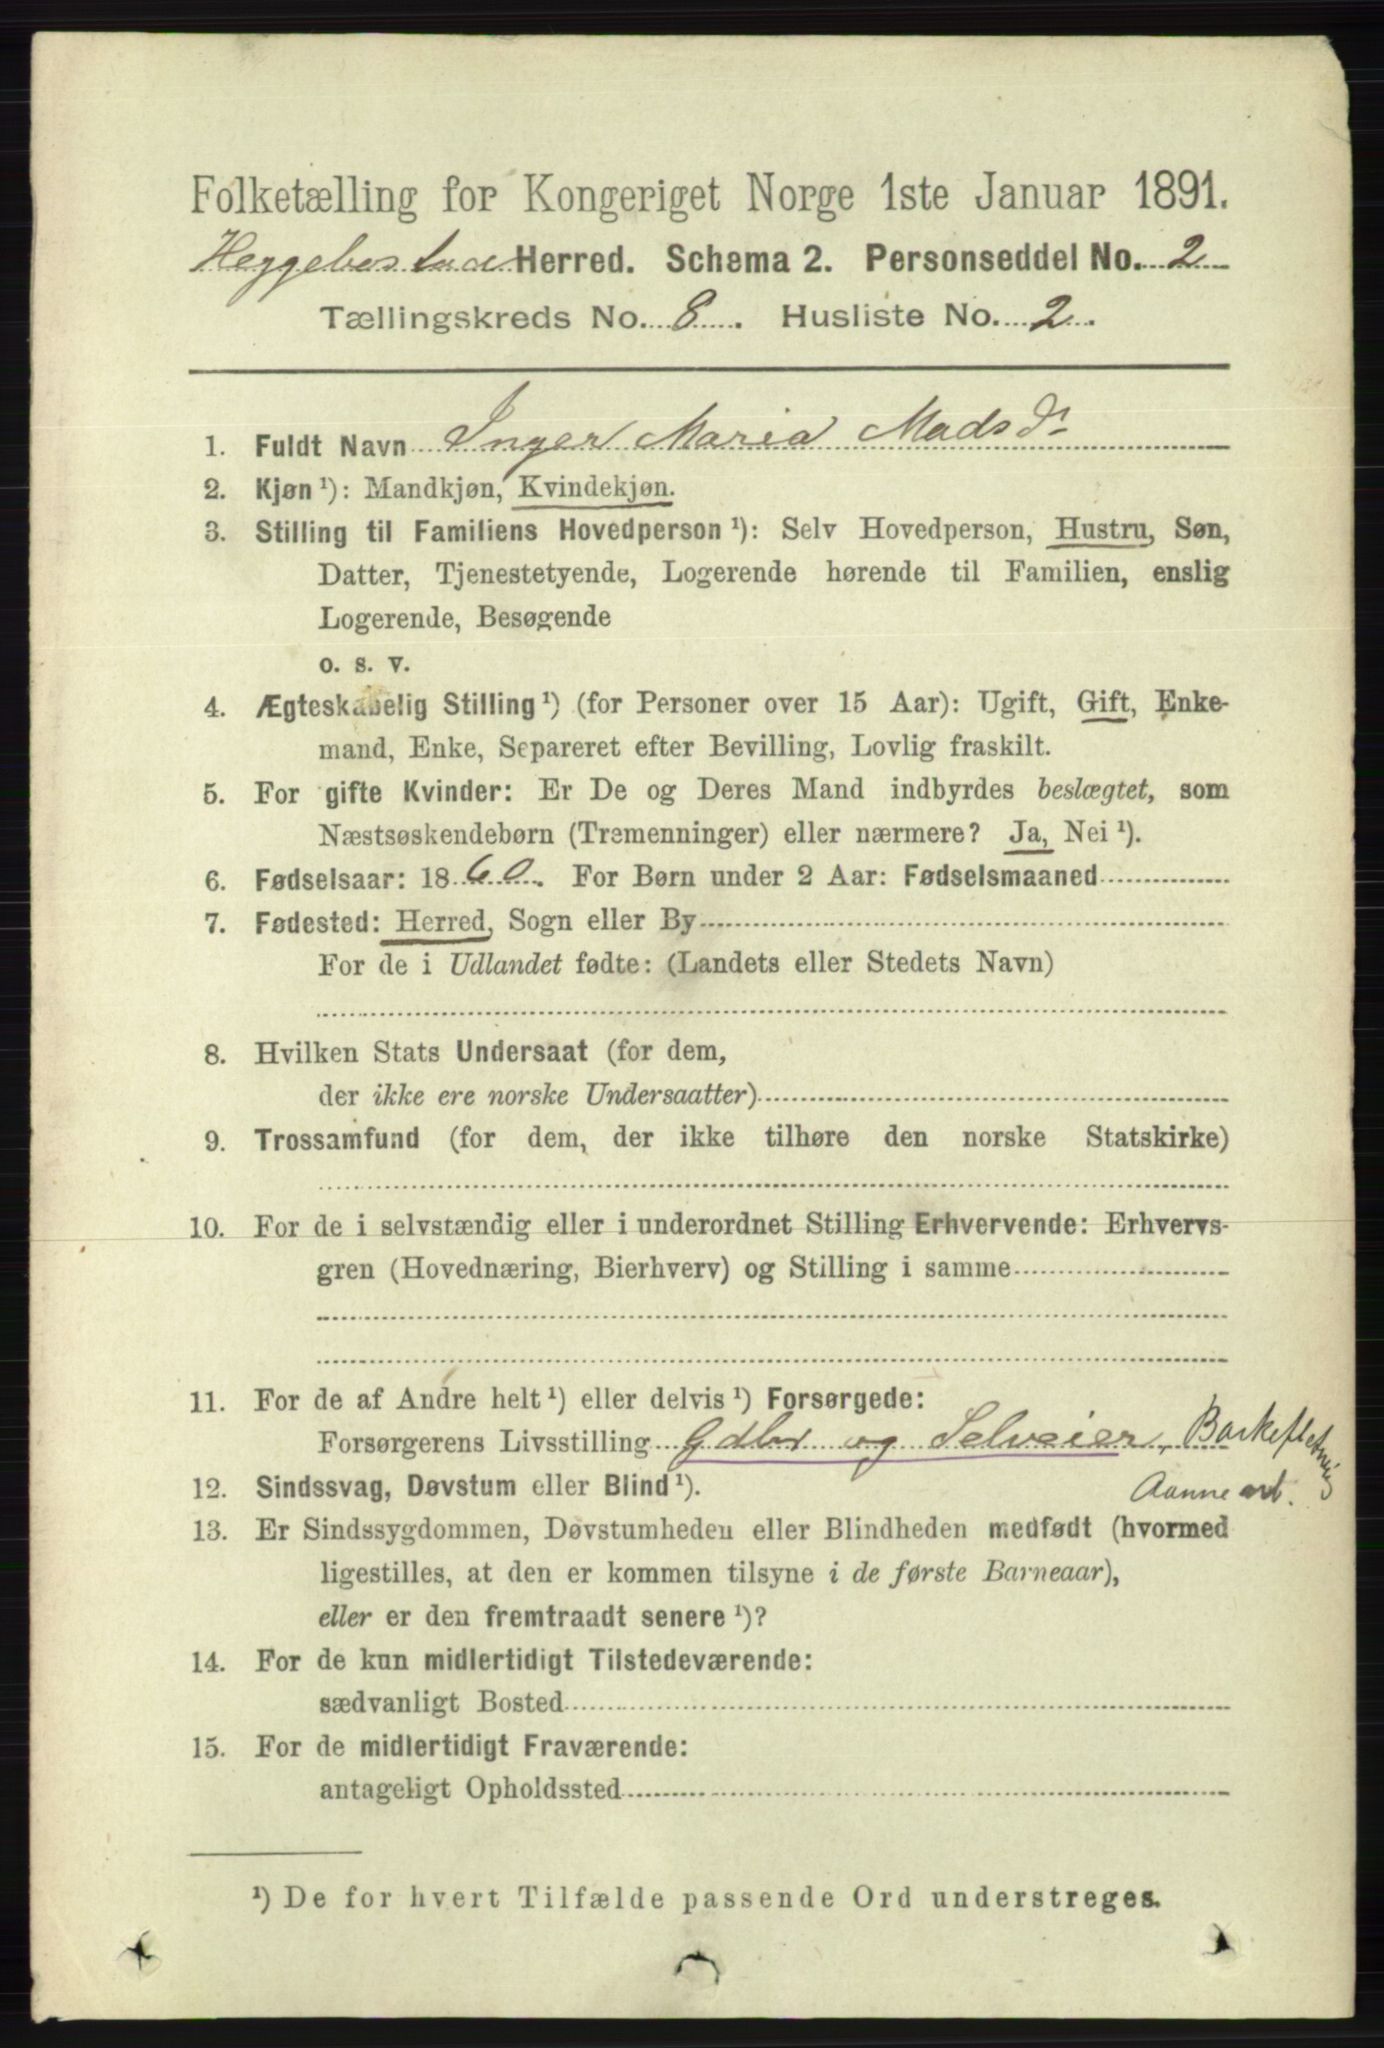 Folketælling for Kongeriget Norge 1ste Januar 1891.
Heggebostad Herred. Schema 2. Personseddel No. 2
Tællingskreds No. 8. Husliste No. 2.
1. Fuldt Navn Inger Maria Madsdr
2. Kjøn ¹): Mandkjøn, Kvindekjøn.
3. Stilling til Familiens Hovedperson ¹): Selv Hovedperson, Hustru, Søn,
Datter, Tjenestetyende, Logerende hørende til Familien, enslig
Logerende, Besøgende
o. s. v.
4. Ægteskabelig Stilling ¹) (for Personer over 15 Aar): Ugift, Gift, Enke-
mand, Enke, Separeret efter Bevilling, Lovlig fraskilt.
5. For gifte Kvinder: Er De og Deres Mand indbyrdes beslægtet, som
Næstsøskendebørn (Tremenninger) eller nærmere? Ja, Nei ¹).
6. Fødselsaar: 1860. For Børn under 2 Aar: Fødselsmaaned
7. Fødested: Herred, Sogn eller By
For de i Udlandet fødte: (Landets eller Stedets Navn)
8. Hvilken Stats Undersaat (for dem,
der ikke ere norske Undersaatter)
9. Trossamfund (for dem, der ikke tilhøre den norske Statskirke)
10. For de i selvstændig eller i underordnet Stilling Erhvervende: Erhvervs-
gren (Hovednæring, Bierhverv) og Stilling i samme
11. For de af Andre helt ¹) eller delvis ¹) Forsørgede:
Forsørgerens Livsstilling Gdbr og Selveier, Barkefletning
12. Sindssvag, Døvstum eller Blind ¹). Aanne art.
13. Er Sindssygdommen, Døvstumheden eller Blindheden medfødt (hvormed
ligestilles, at den er kommen tilsyne i de første Barneaar),
eller er den fremtraadt senere ¹)?
14. For de kun midlertidigt Tilstedeværende:
sædvanligt Bosted
15. For de midlertidigt Fraværende:
antageligt Opholdssted
¹) De for hvert Tilfælde passende Ord understreges.